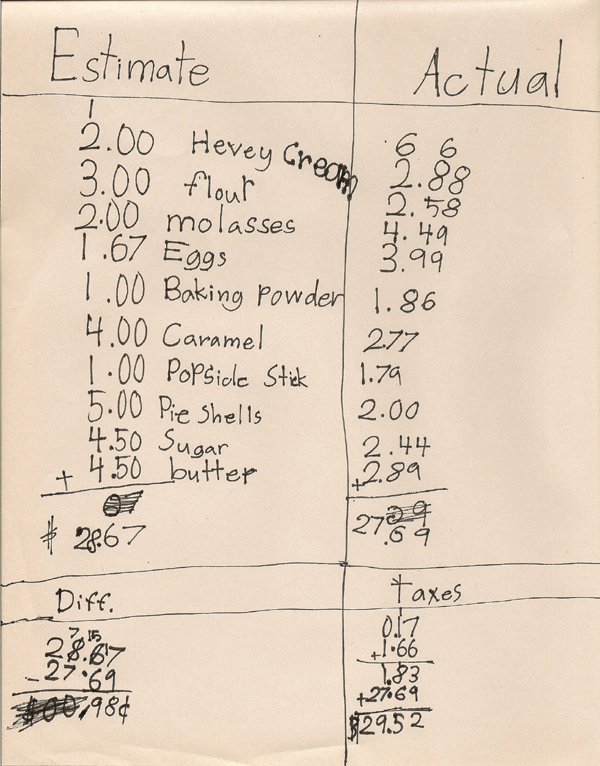 Estimate Actual
1
2.00 Hevey Cream 6 6
3.00 flour 2.88
2.00 molasses 2.58
1.67 Eggs 4.49
3.99
1.00 Baking Powder 1.86
4.00 Caramel 2.77
1.00 PoPSicle Stick 1.79
5.00 Pie Shells 2.00
4.50 Sugar 2.44
+ 4.50 butter +2.89
$ 28.67 27.69
Diff. Taxes
7 15
28.67 0.17
- 27.69 +1.66
1.83
+27.69
.98¢ $29.52